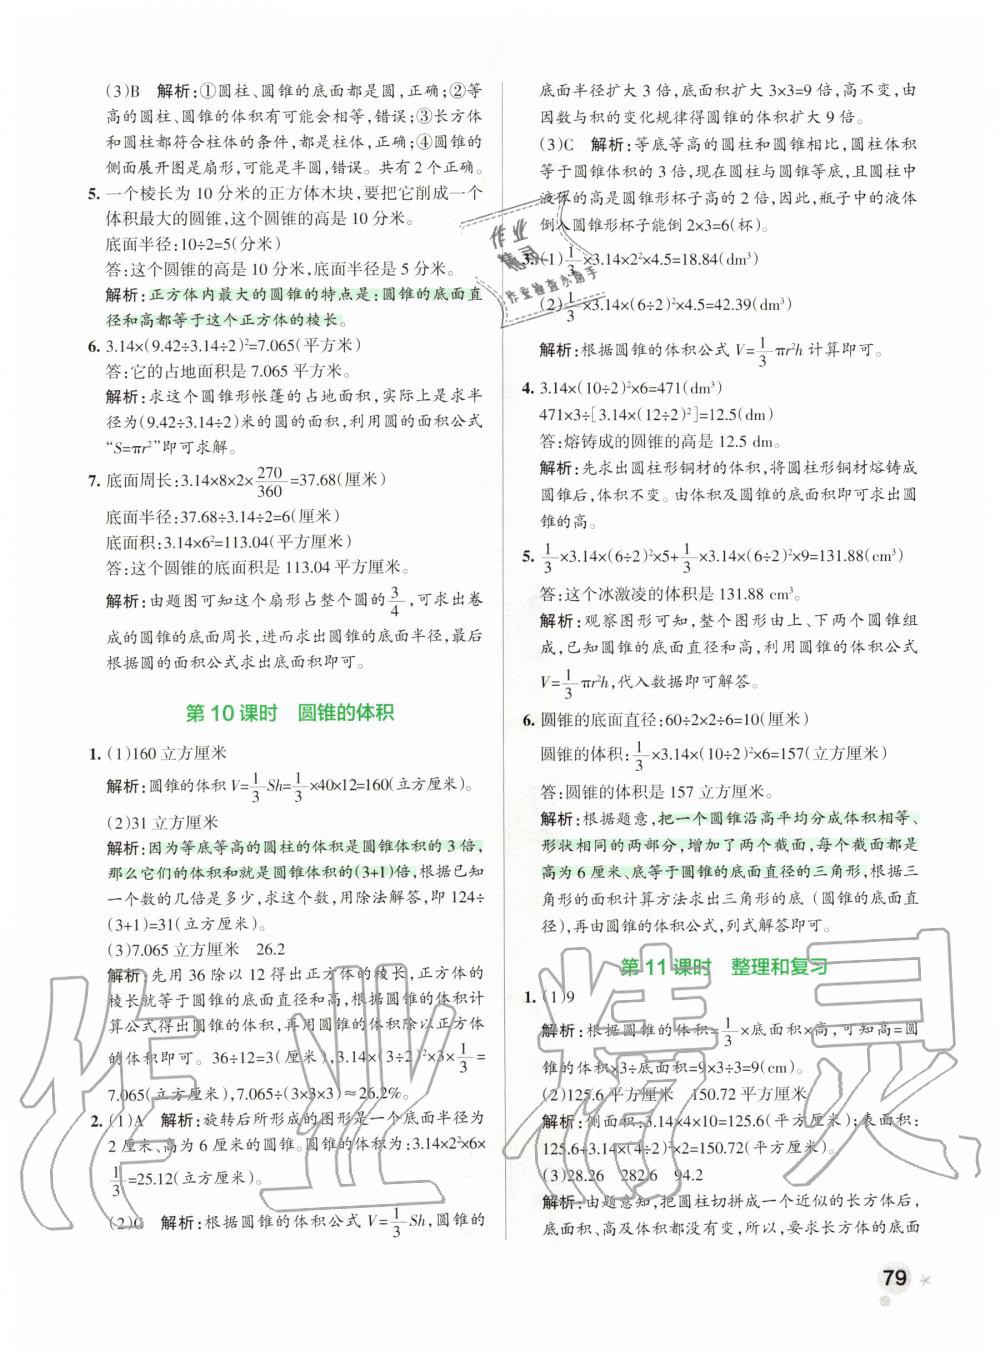 (3)B 解析:①圆柱、圆锥的底面都是圆,正确;②等
高的圆柱、圆锥的体积有可能会相等,错误;③长方体
和圆柱都符合柱体的条件,都是柱体,正确;④圆锥的
侧面展开图是扇形,可能是半圆,错误。共有 2 个正确。
5. 一个棱长为 10 分米的正方体木块,要把它削成一个
体积最大的圆锥,这个圆锥的高是 10 分米。
底面半径:10÷2=5(分米)
答:这个圆锥的高是 10 分米,底面半径是 5 分米。
解析:正方体内最大的圆锥的特点是:圆锥的底面直
径和高都等于这个正方体的棱长。
6. 3.14×(9.42÷3.14÷2)²=7.065(平方米)
答:它的占地面积是 7.065 平方米。
解析:求这个圆锥形帐篷的占地面积,实际上是求半
径为(9.42÷3.14÷2)米的圆的面积,利用圆的面积公式
“S=πr²”即可求解。
7. 底面周长:3.14×8×2×270/360=37.68(厘米)
底面半径:37.68÷3.14÷2=6(厘米)
底面积:3.14×6²=113.04(平方厘米)
答:这个圆锥的底面积是 113.04 平方厘米。
解析:由题图可知这个扇形占整个圆的3/4,可求出卷
成的圆锥的底面周长,进而求出圆锥的底面半径,最后
根据圆的面积公式求出底面积即可。
第 10 课时 圆锥的体积
1. (1)160 立方厘米
解析:圆锥的体积 V=1/3Sh=1/3×40×12=160(立方厘米)。
(2)31 立方厘米
解析:因为等底等高的圆柱的体积是圆锥体积的 3 倍,
那么它们的体积和就是圆锥体积的(3+1)倍,根据已知
一个数的几倍是多少,求这个数,用除法解答,即 124÷
(3+1)=31(立方厘米)。
(3)7.065 立方厘米 26.2
解析:先用 36 除以 12 得出正方体的棱长,正方体的
棱长就等于圆锥的底面直径和高,根据圆锥的体积计
算公式得出圆锥的体积,再用圆锥的体积除以正方体
的体积即可。36÷12=3(厘米),3.14×(3÷2)²×3×1/3=
7.065(立方厘米),7.065÷(3×3×3)≈26.2%。
2. (1)A 解析:旋转后所形成的图形是一个底面半径为
2 厘米、高为 6 厘米的圆锥。圆锥的体积为:3.14×2²×6×
1/3=25.12(立方厘米)。
(2)C 解析:根据圆锥的体积公式 V=1/3Sh,圆锥的
底面半径扩大 3 倍,底面积扩大 3×3=9 倍,高不变,由
因数与积的变化规律得圆锥的体积扩大 9 倍。
(3)C 解析:等底等高的圆柱和圆锥相比,圆柱体积
等于圆锥体积的 3 倍,现在圆柱与圆锥等底,且圆柱中
液体的高是圆锥形杯子高的 2 倍,因此,瓶子中的液体
倒入圆锥形杯子能倒 2×3=6(杯)。
3. (1)1/3×3.14×2²×4.5=18.84(dm³)
(2)1/3×3.14×(6÷2)²×4.5=42.39(dm³)
解析:根据圆锥的体积公式 V=1/3πr²h 计算即可。
4. 3.14×(10÷2)²×6=471(dm³)
471×3÷[3.14×(12÷2)²]=12.5(dm)
答:熔铸成的圆锥的高是 12.5 dm。
解析:先求出圆柱形钢材的体积,将圆柱形钢材熔铸成
圆锥后,体积不变。由体积及圆锥的底面积即可求出圆
锥的高。
5. 1/3×3.14×(6÷2)²×5+1/3×3.14×(6÷2)²×9=131.88(cm³)
答:这个冰激凌的体积是 131.88 cm³。
解析:观察图形可知,整个图形由上、下两个圆锥组
成,已知圆锥的底面直径和高,利用圆锥的体积公式
V=1/3πr²h,代入数据即可解答。
6. 圆锥的底面直径:60÷2×2÷6=10(厘米)
圆锥的体积:1/3×3.14×(10÷2)²×6=157(立方厘米)
答:圆锥的体积是 157 立方厘米。
解析:根据题意,把一个圆锥沿高平均分成体积相等、
形状相同的两部分,增加了两个截面,每个截面都是
高为 6 厘米、底等于圆锥的底面直径的三角形,根据三
角形的面积计算方法求出三角形的底(圆锥的底面直
径),再由圆锥的体积公式,列式解答即可。
第 11 课时 整理和复习
1. (1)9
解析:根据圆锥的体积=1/3×底面积×高,可知高=圆
锥的体积×3÷底面积=9×3÷3=9(cm)。
(2)125.6 平方厘米 150.72 平方厘米
解析:侧面积:3.14×4×10=125.6(平方厘米);表面积:
125.6+3.14×(4÷2)²×2=150.72(平方厘米)。
(3)28.26 282.6 94.2
解析:由题意知,把圆柱切拼成一个近似的长方体后,
底面积、高及体积都没有变,所以,要求长方体的底面
79
作业
精灵
作业检查小助手
作业精灵